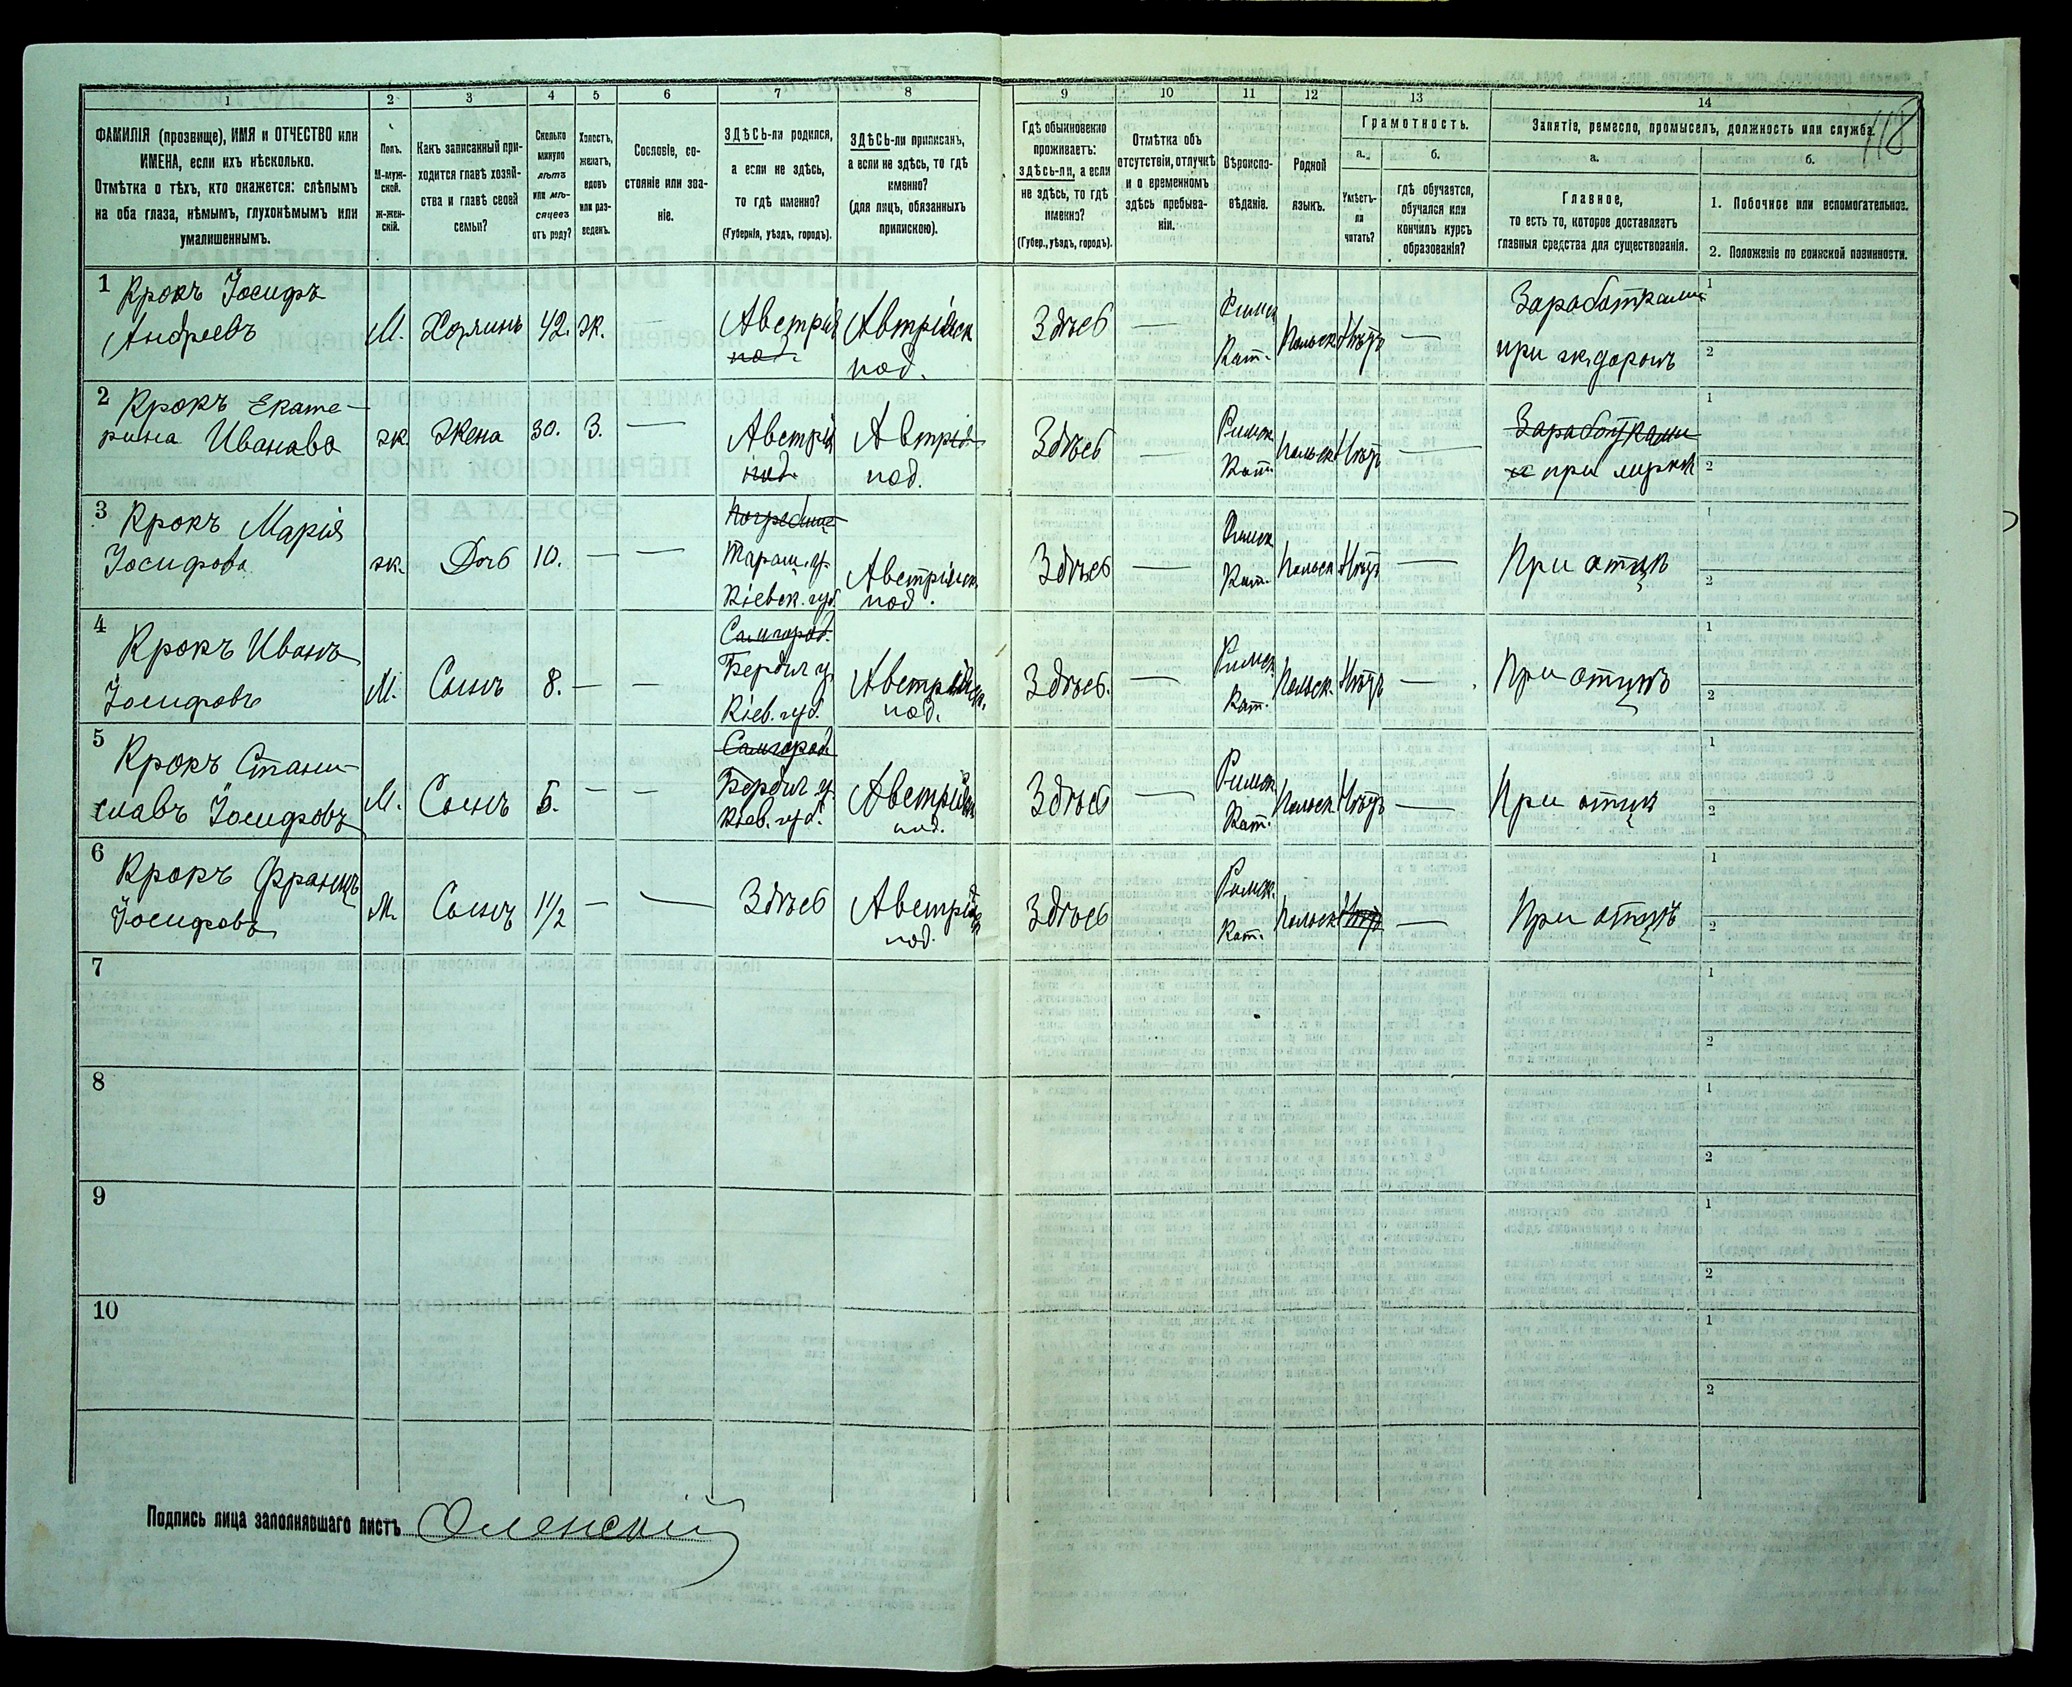 118
1
2
3
4
5
6
7
8
9
10
11
12
13
14
ФАМИЛІЯ (прозвище), ИМЯ и ОТЧЕСТВО или
ИМЕНА, если ихъ нѣсколько.
Отмѣтка о тѣхъ, кто окажется: слѣпымъ
на оба глаза, нѣмымъ, глухонѣмымъ или
умалишеннымъ.
Полъ.
М-муж-
ской.
Ж-жен-
скій.
Какъ записанный при-
ходится главѣ хозяй-
ства и главѣ своей
семьи?
Сколько
минуло
лѣтъ
или мѣ-
сяцевъ
отъ роду?
Холостъ,
женатъ,
вдовъ
или раз-
веденъ.
Сословіе, со-
стояніе или зва-
ніе.
ЗДѢСЬ-ли родился,
а если не здѣсь,
то гдѣ именно?
(Губернія, уѣздъ, городъ).
ЗДѢСЬ-ли приписанъ,
а если не здѣсь, то гдѣ
именно?
(для лицъ, обязанныхъ
припискою).
Гдѣ обыкновенно
проживаетъ:
здѣсь-ли, а если
не здѣсь, то гдѣ
именно?
(Губер., уѣздъ, городъ).
Отмѣтка объ
отсутствіи, отлучкѣ
и о временномъ
здѣсь пребыва-
ніи.
Вѣроиспо-
вѣданіе.
Родной
языкъ.
Грамотность.
а.
Умѣетъ-
ли
читать?
б.
гдѣ обучается,
обучался или
кончилъ курсъ
образованія?
Занятіе, ремесло, промыселъ, должность или служба.
а.
Главное,
то есть то, которое доставляетъ
главныя средства для существованія.
б.
1. Побочное или вспомогательное.
2. Положеніе по воинской повинности.
1 Крокъ Іосифъ
Андреевъ
М. Хозяинъ 42. ж. — Австрія
под.
Австрійск
под.
Здѣсь — Римск
Кат.
Польск Нѣтъ — Заработками
при ж. дорогѣ
1
2
2 Крокъ Екате-
рина Иванова
ж. Жена 30. З. — Австрія
под.
Австрій
под.
Здѣсь Римск
Кат
Польск Нѣтъ — Заработками
при мужѣ
1
2
3 Крокъ Марія
Іосифова
ж. Дочь 10. — — Погребище
Таращ. у.
Кіевск. губ.
Австрійск.
под.
Здѣсь — Римск
Кат.
Польск Нѣтъ — При отцѣ
1
2
4 Крокъ Иванъ
Іосифовъ
М. Сынъ 8. — — Самгород.
Бердич у.
Кіев. губ.
Австрійск.
под.
Здѣсь. — Римск.
Кат.
Польск. Нѣтъ — При отцѣ
1
2
5 Крокъ Стани-
славъ Іосифовъ
М. Сынъ 5. — — Самгород
Бердич у.
Кіев. губ.
Австрійск
под.
Здѣсь — Римск
Кат.
Польск. Нѣтъ — При отцѣ
1
2
6 Крокъ Францъ
Іосифовъ
М. Сынъ 1 1/2 — — Здѣсь Австрійск
под.
Здѣсь Римск.
Кат.
Польск Нѣтъ — При отцѣ
1
2
7
1
2
8
1
2
9
1
2
10
1
2
Подпись лица заполнявшаго листъ Оленскій